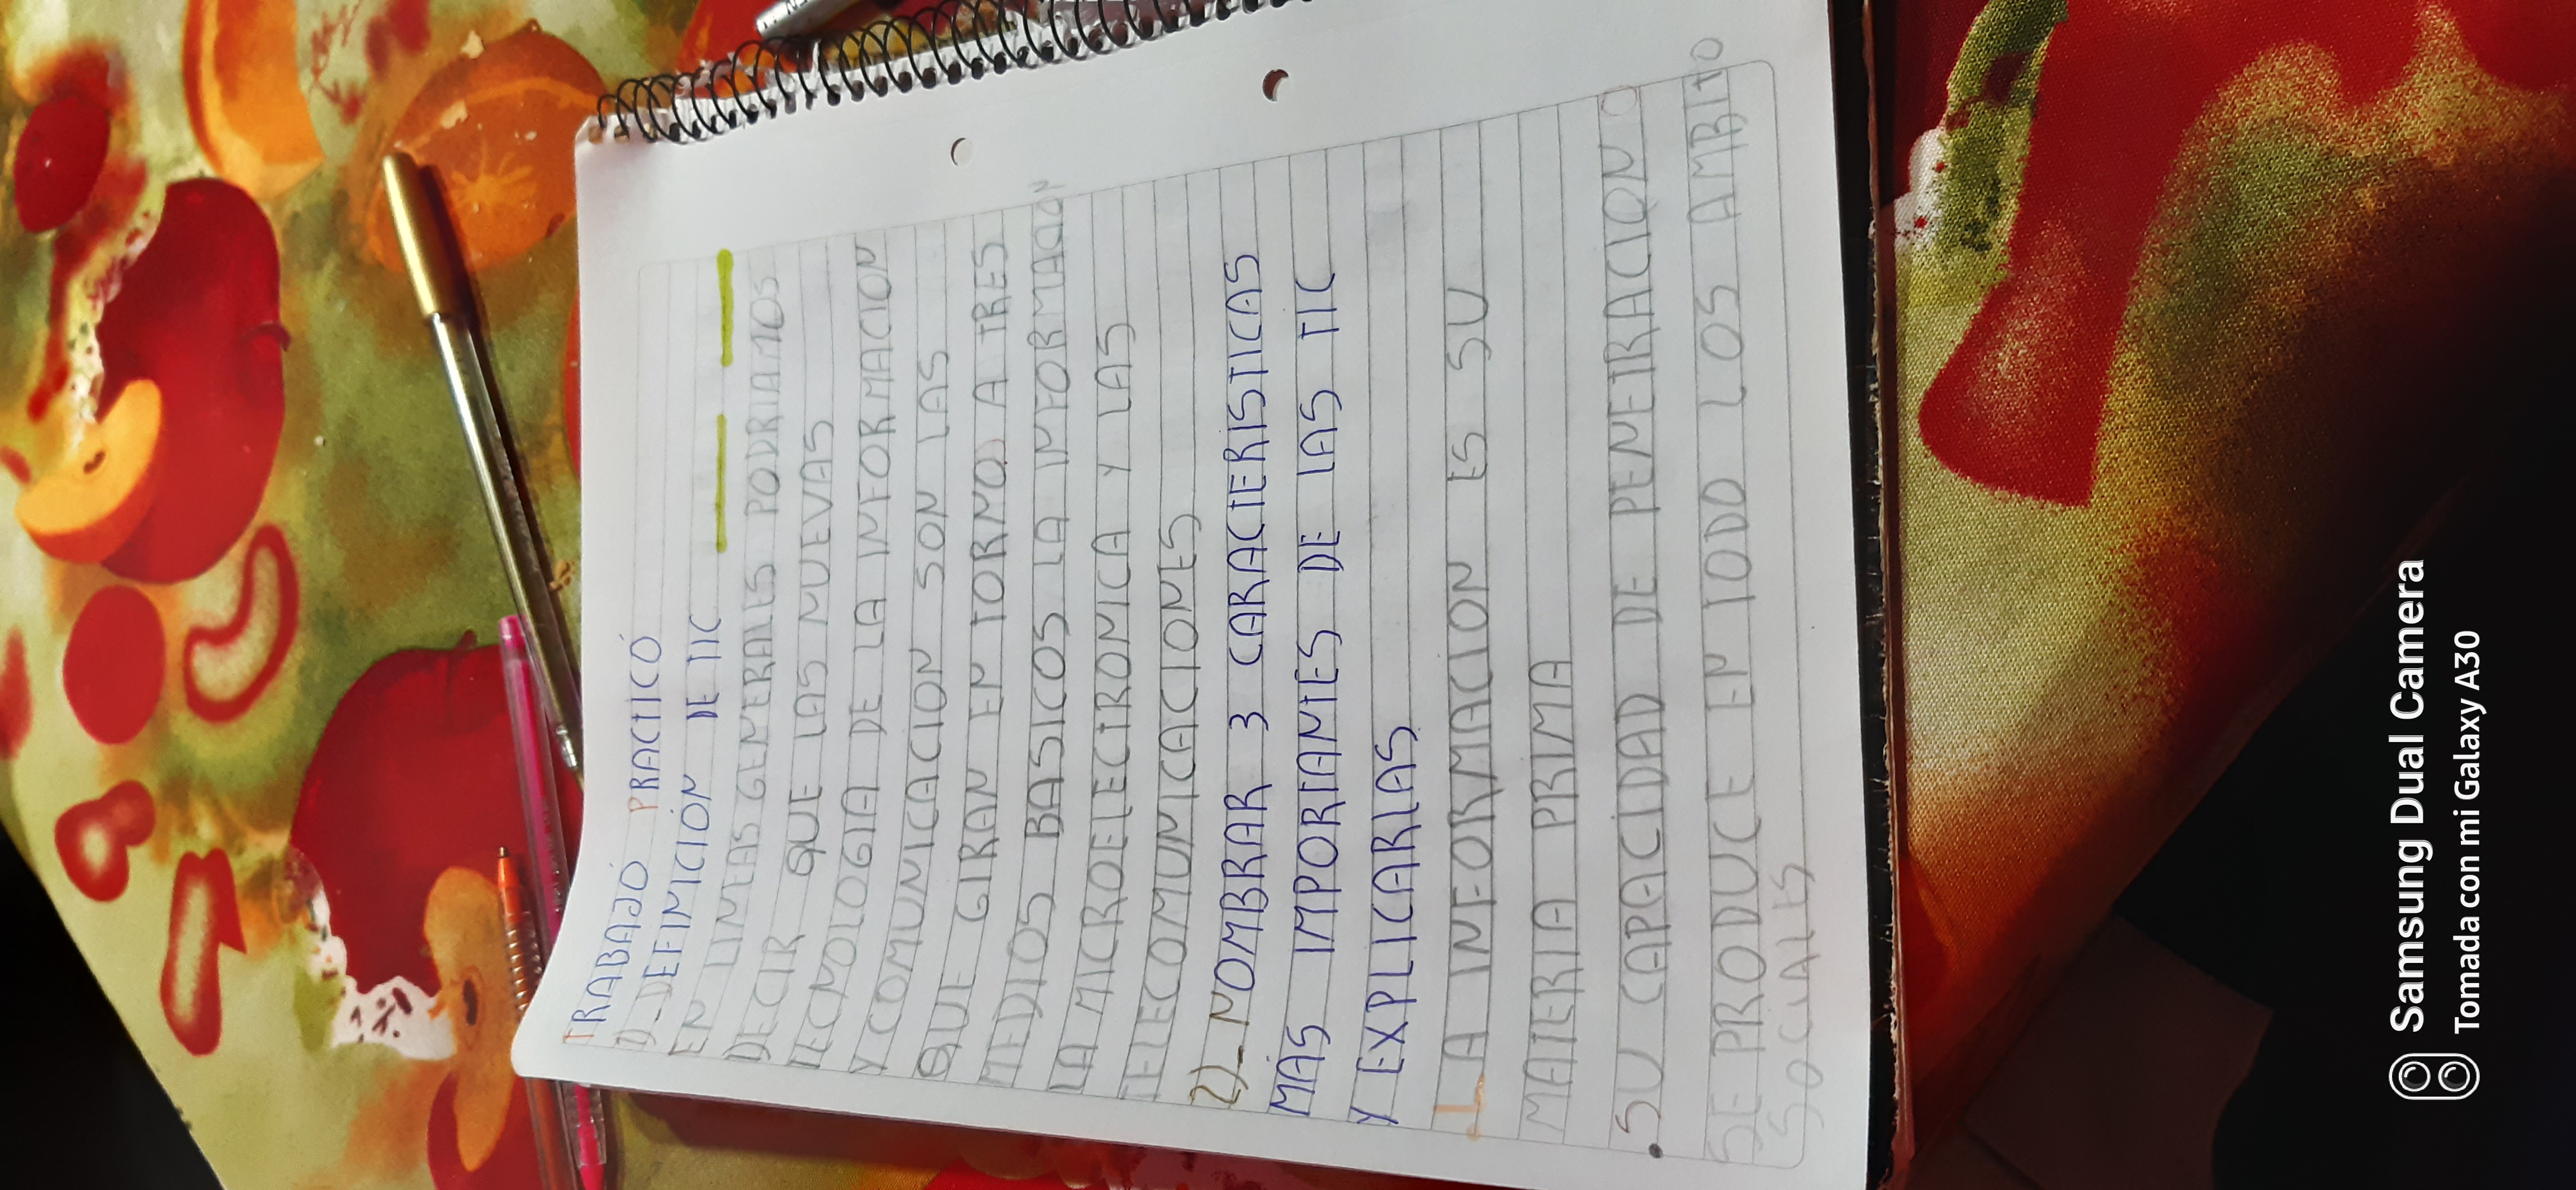 TRABAJÓ PRACTICÓ
1)_DEFINICIÓN DE TIC
EN LINEAS GENERALES PODRIAMOS
DECIR QUE LAS NUEVAS
TECNOLOGIA DE LA INFORMACION
Y COMUNICACION SON LAS
QUE GIRAN EN TORNO A TRES
MEDIOS BASICOS LA INFORMACION
LA MICROELECTRONICA Y LAS
TELECOMUNICACIONES
2)_NOMBRAR 3 CARACTERISTICAS
MÁS IMPORTANTES DE LAS TIC
Y EXPLICARLAS
LA INFORMACION ES SU
MATERIA PRIMA
. SU CAPACIDAD DE PENETRACION O
SE PRODUCE EN TODO LOS AMBITO
SOCIALES
Samsung Dual Camera
Tomada con mi Galaxy A30